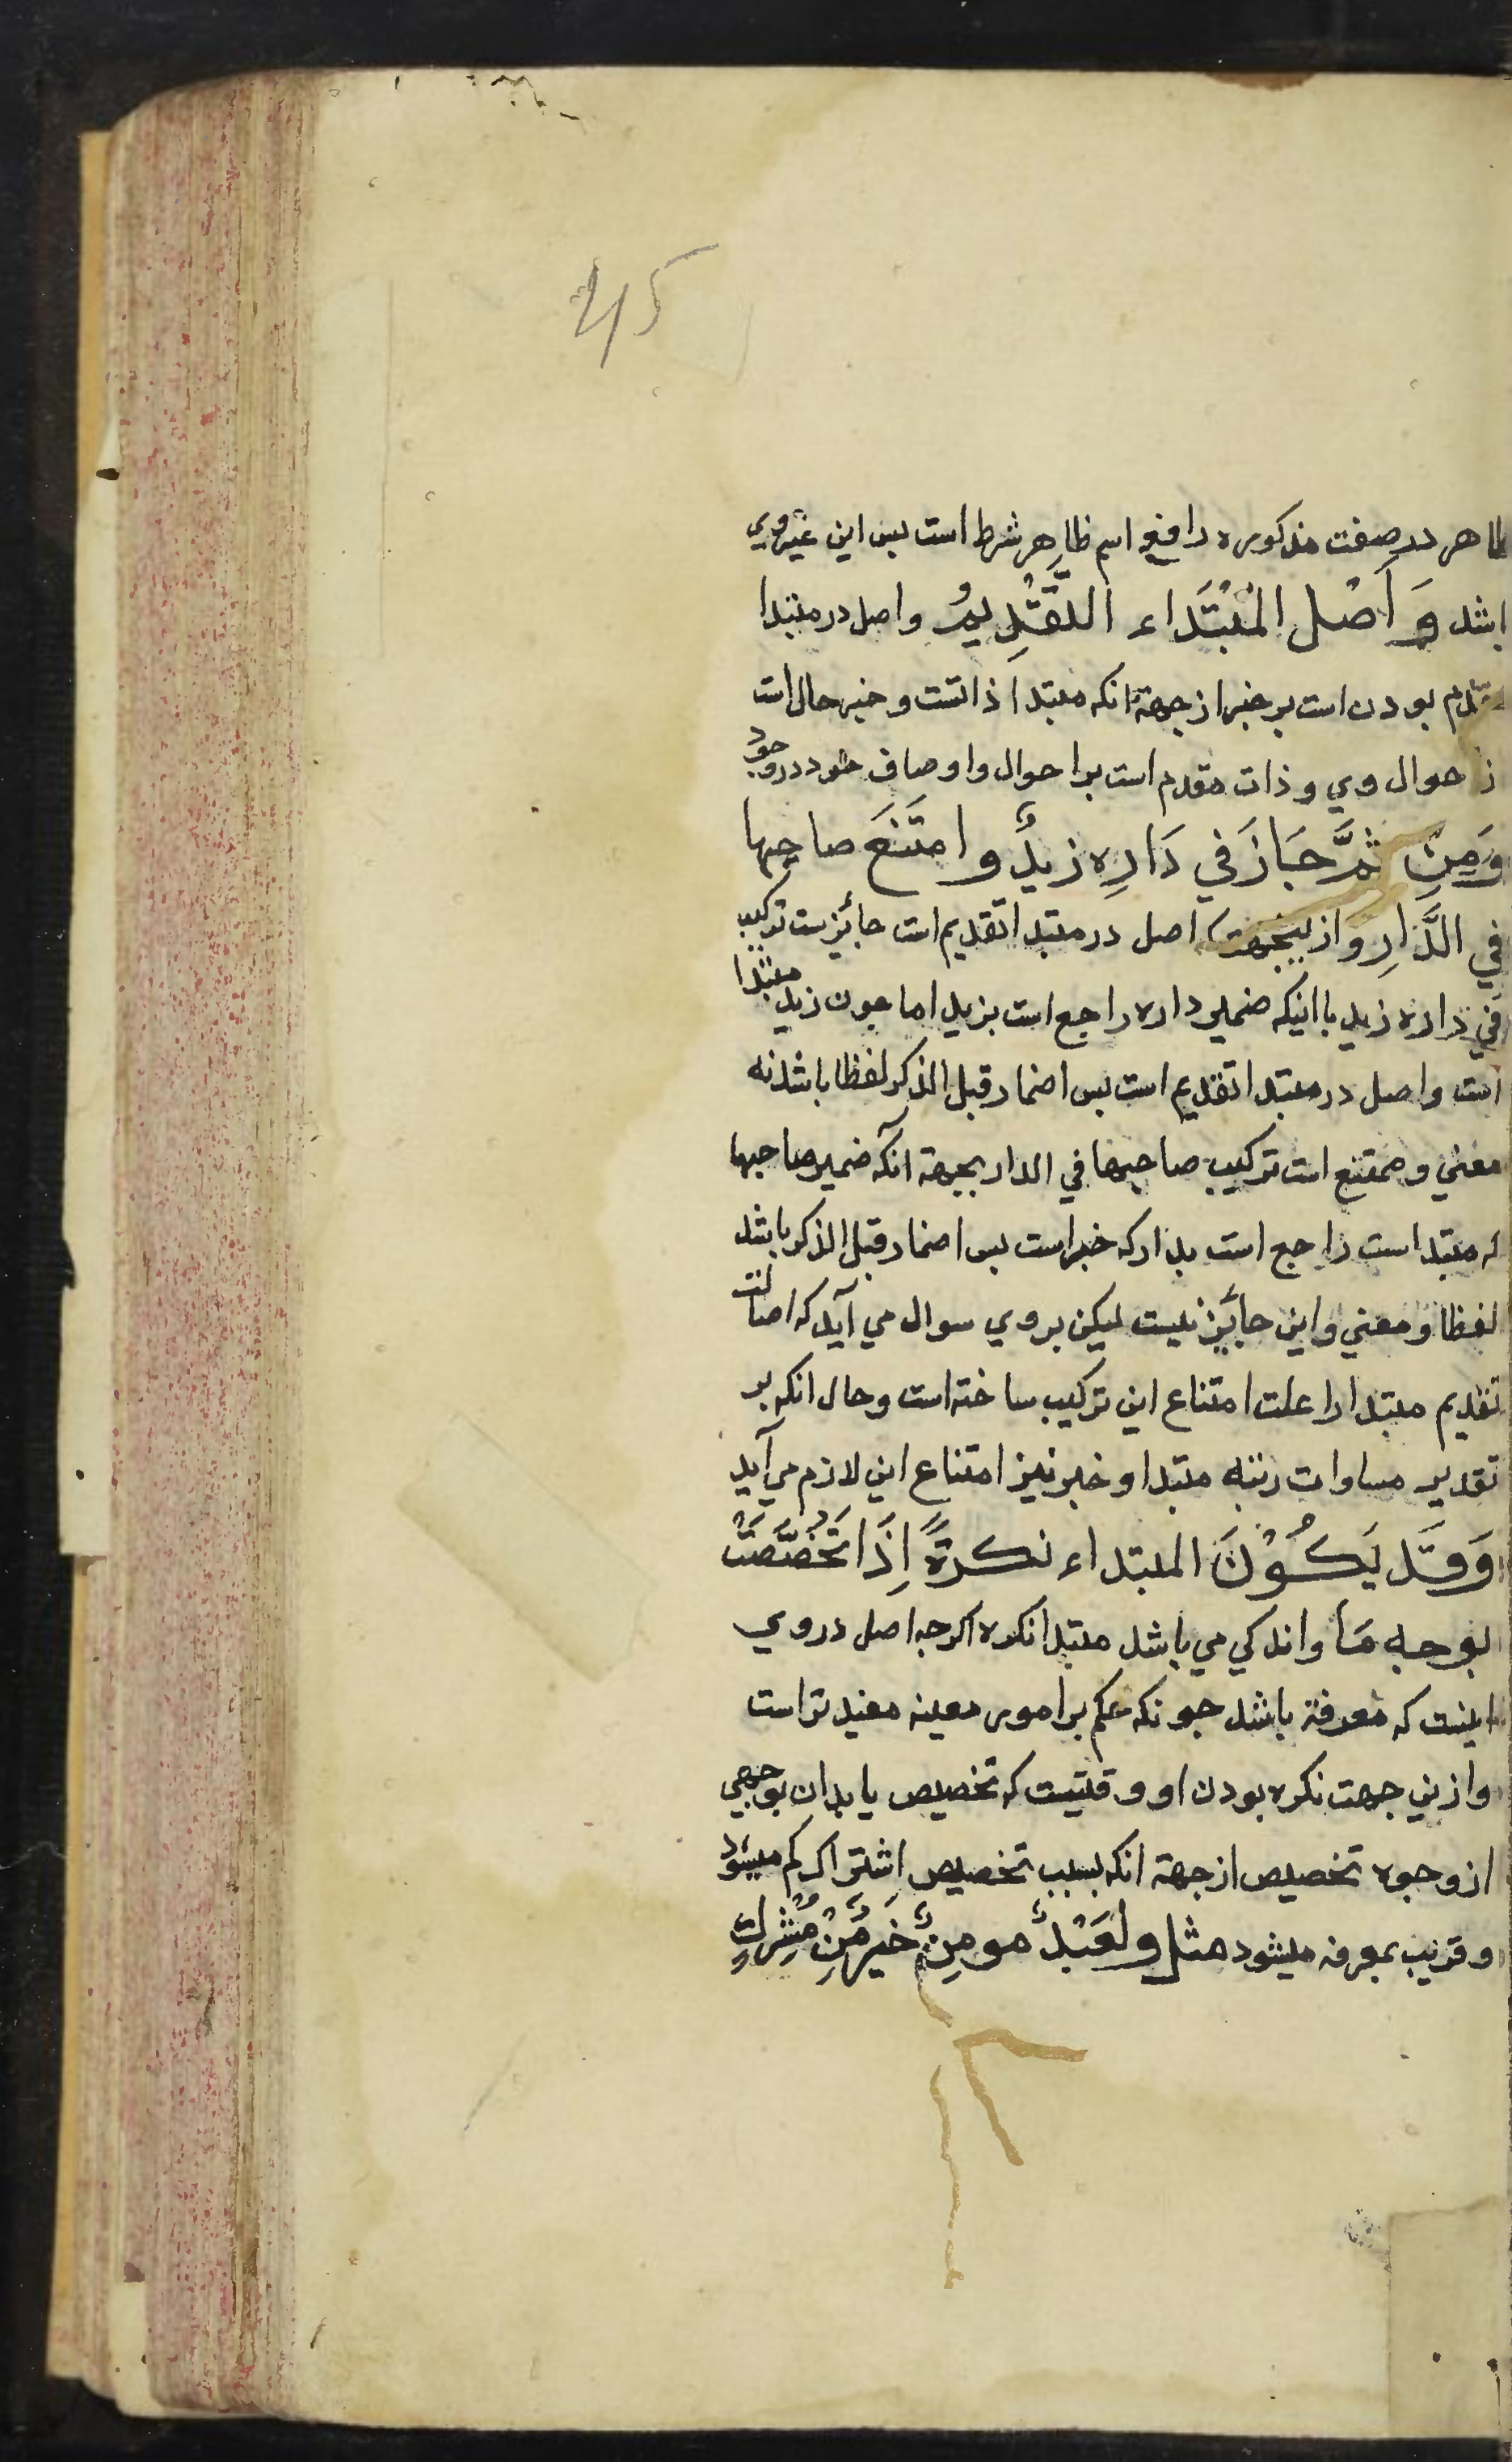 ۴۵
ظاهر در صفت مذکوره رافع اسم ظاهر شرط است بس این غیر وي
باشد وَ اَصْل المُبْتَداء التَّقْدِیمُ واصل در مبتدا
مقدم بودن است بر خبر از جهة انکه مبتدا ذاتست و خبر حال است
از احوال وي و ذات مقدم است بر احوال و اوصاف خود در وجود
وَمِنْ ثَمَّ جَازَ في دَارِه زیدٌ وامتَنَعَ صاحِبها
في الدَّارِ و از ینجهت اصل در مبتدا تقدیم است جائزست ترکیب
في داره زید با اینکه ضمیر داره راجع است بزید اما چون زید مبتدا
است واصل در مبتدا تقدیم است بس اضمار قبل الذکر لفظا باشد نه
معني و ممتنع است ترکیب صاحبها في الدار بجهة آنکه ضمیر صاحبها
که مبتداست راجع است بدار که خبر است بس اضمار قبل الذکر باشد
لفظا و معني و این جائز نیست لیکن بر وي سوال مي آید که اصالت
تقدیم مبتدا را علت امتناع این ترکیب ساخته است وحال انکه بر
تقدیر مساوات رتبه مبتدا و خبر نیز امتناع این لازم مي آید
وَقَد یَکُوْنَ المبتداء نکرةً اِذَا تَخَصَّصَتْ
بوجه مَا واندکي مي باشد مبتدا نکره اکرچه اصل در وي
اینست که معرفة باشد چونکه حکم بر امور معینه مفید تر است
و ازین جهت نکره بودن او وقتیست که تخصیص یابد ان بوجهي
از وجوه تخصیص از جهة انکه بسبب تخصیص اشتراک کم میشود
و قریب بمعرفه میشود مثل ولَعَبْدٌ مومِنٌ خَیرٌ مِّنْ مُشْرِكٍ